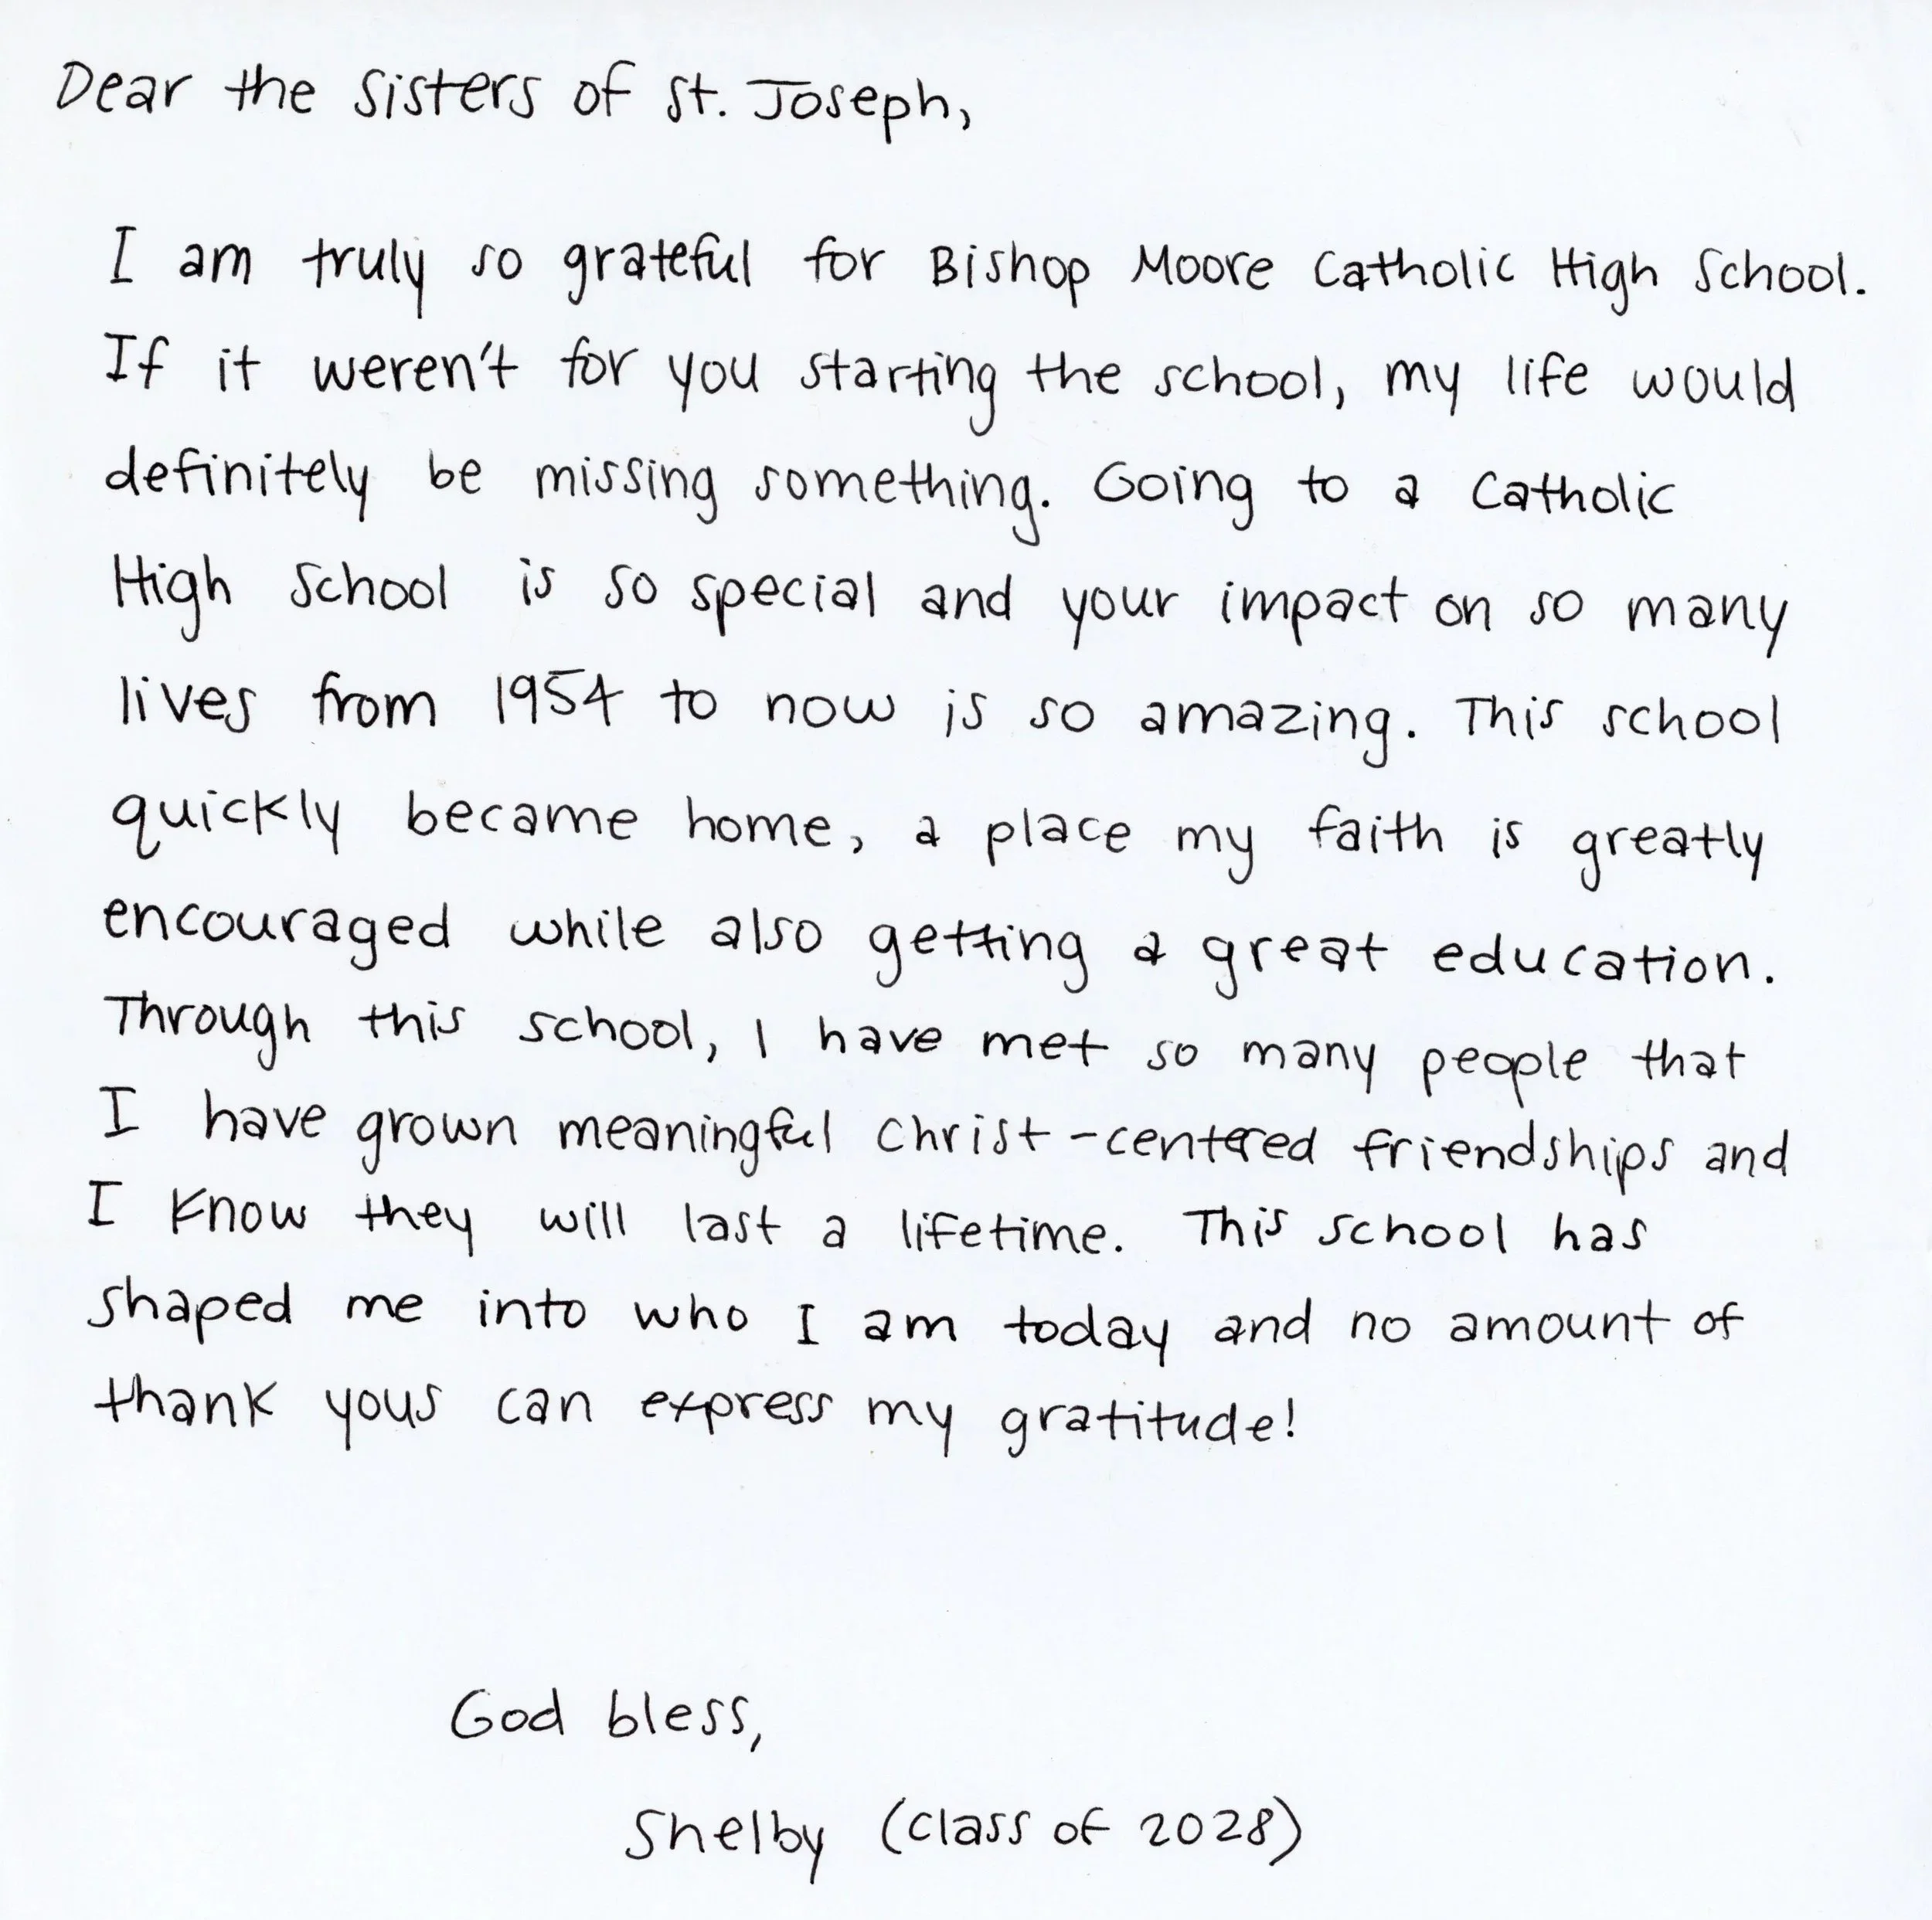 Dear the Sisters of St. Joseph,
I am truly so grateful for Bishop Moore Catholic High School.
If it weren't for you starting the school, my life would
definitely be missing something. Going to a Catholic
High School is so special and your impact on so many
lives from 1954 to now is so amazing. This school
quickly became home, a place my faith is greatly
encouraged while also getting a great education.
Through this school, I have met so many people that
I have grown meaningful Christ-centered friendships and
I know they will last a lifetime. This school has
shaped me into who I am today and no amount of
thank yous can express my gratitude!
God bless,
Shelby (class of 2028)